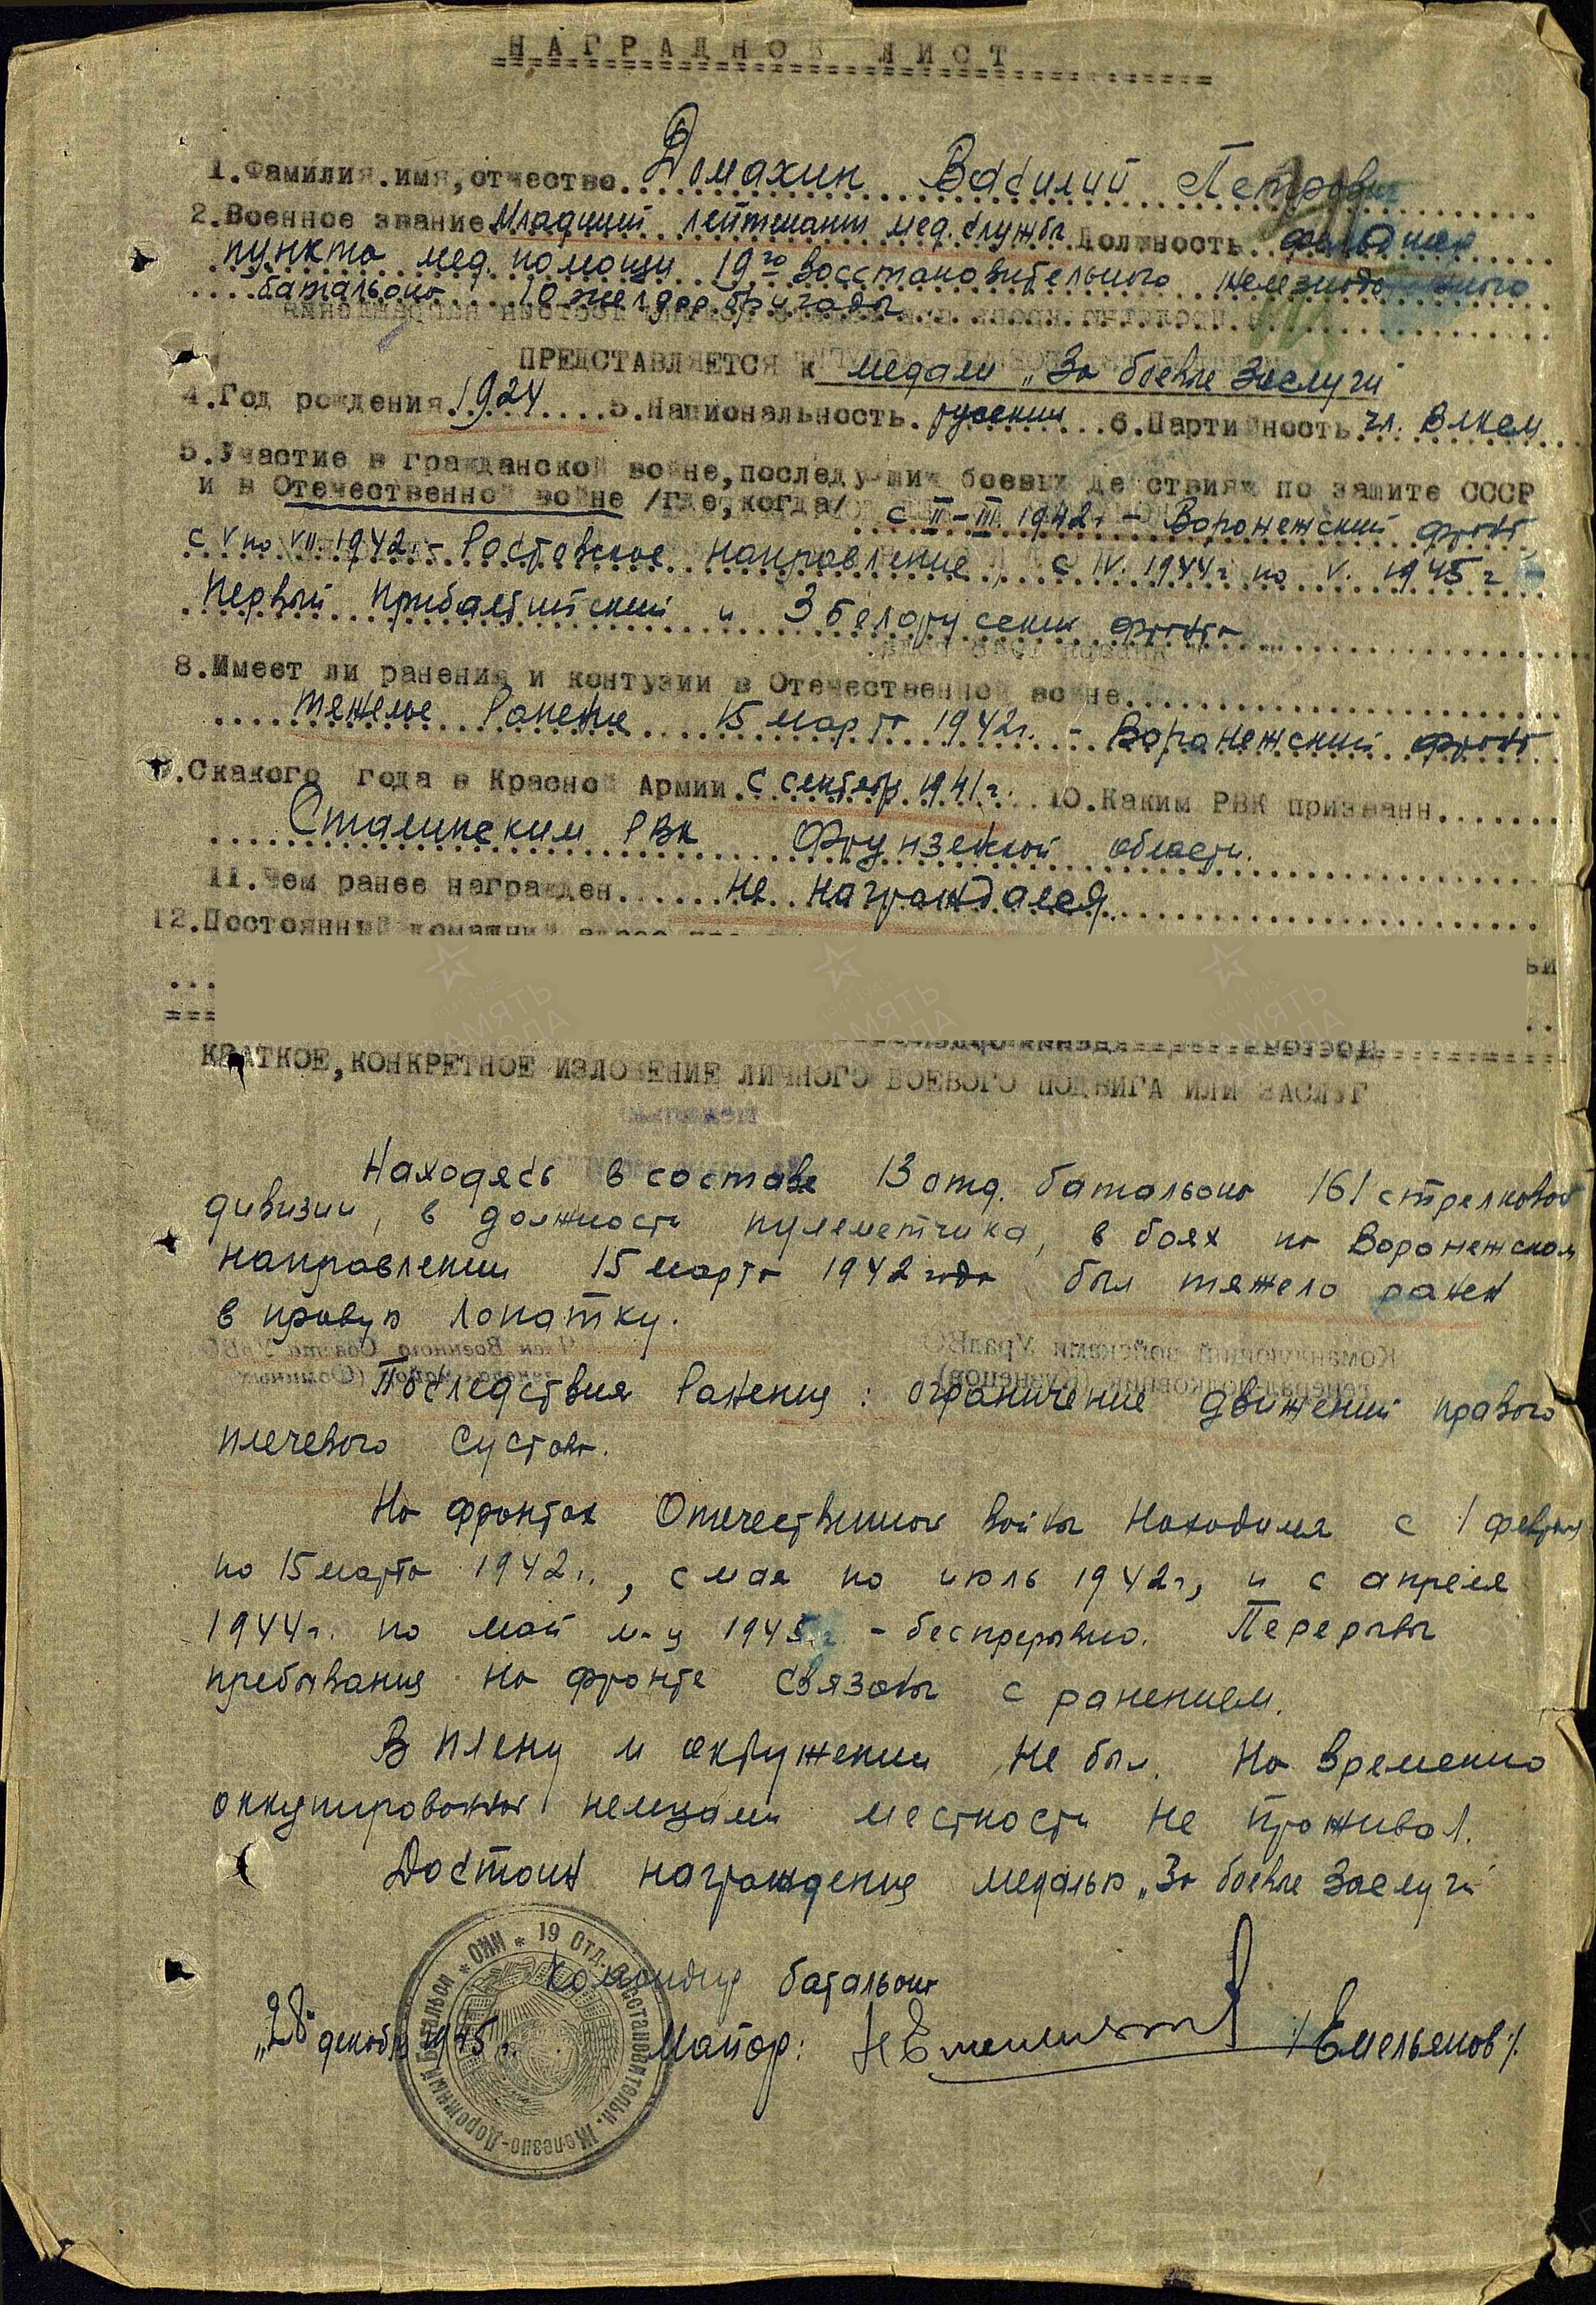 НАГРАДНОЙ ЛИСТ
1. Фамилия.имя,отчество Домахин Василий Петрович
2. Военное звание Младший лейтенант мед. службы Должность фельдшер
пункта мед. помощи 19го восстановительного железнодорожного
батальона 10 жел дор. бригады
ПРЕДСТАВЛЯЕТСЯ к медали „За боевые заслуги"
4. Год рождения 1924 5. Национальность русский 6. Партийность чл. ВЛКСМ
5. Участие в гражданской войне, последующих боевых действиях по защите СССР
и в Отечественной войне /где, когда/ с II - III 1942 г - Воронежский фронт,
с V по VII. 1942 г. - Ростовское направление, с IV. 1944 г по V. 1945 г -
Первый Прибалтийский и 3 Белорусский фронта
8. Имеет ли ранения и контузии в Отечественной войне
тяжелое Ранение 15 марта 1942 г. - Воронежский фронт
9. Скакого года в Красной Армии с сентябр. 1941 г. 10. Каким РВК призванн
Сталинским РВК Фрунзенской области.
11. Чем ранее награжден не награждался
12. Постоянный домашний адрес
КРАТКОЕ, КОНКРЕТНОЕ ИЗЛОЖЕНИЕ ЛИЧНОГО БОЕВОГО ПОДВИГА ИЛИ ЗАСЛУГ
Находясь в составе 13 отд. батальона 161 стрелковой
дивизии, в должности пулеметчика, в боях на Воронежском
направлении 15 марта 1942 года был тяжело ранен
в правую лопатку.
Командующий войсками УралВО
генерал-полковник (Кузнецов)
Член Военного Совета УрВО
Последствия Ранения: ограничение движений правого
плечевого сустава.
На фронтах Отечественной войны находился с 1 февраля
по 15 марта 1942 г., с мая по июль 1942 г, и с апреля
1944 г. по май м-ц 1945 г. - беспрерывно. Перерывы
пребывания на фронте связаны с ранением.
В плену и окружении не был. На временно
оккупированной немцами местности не проживал.
Достоин награждения медалью „За боевые заслуги"
Командир батальона
„28" декабря 1945 г. Майор: НЕмельянов /Емельянов/
* 19 Отд. Восстановительн. Железно-Дорожный Батальон * НКО